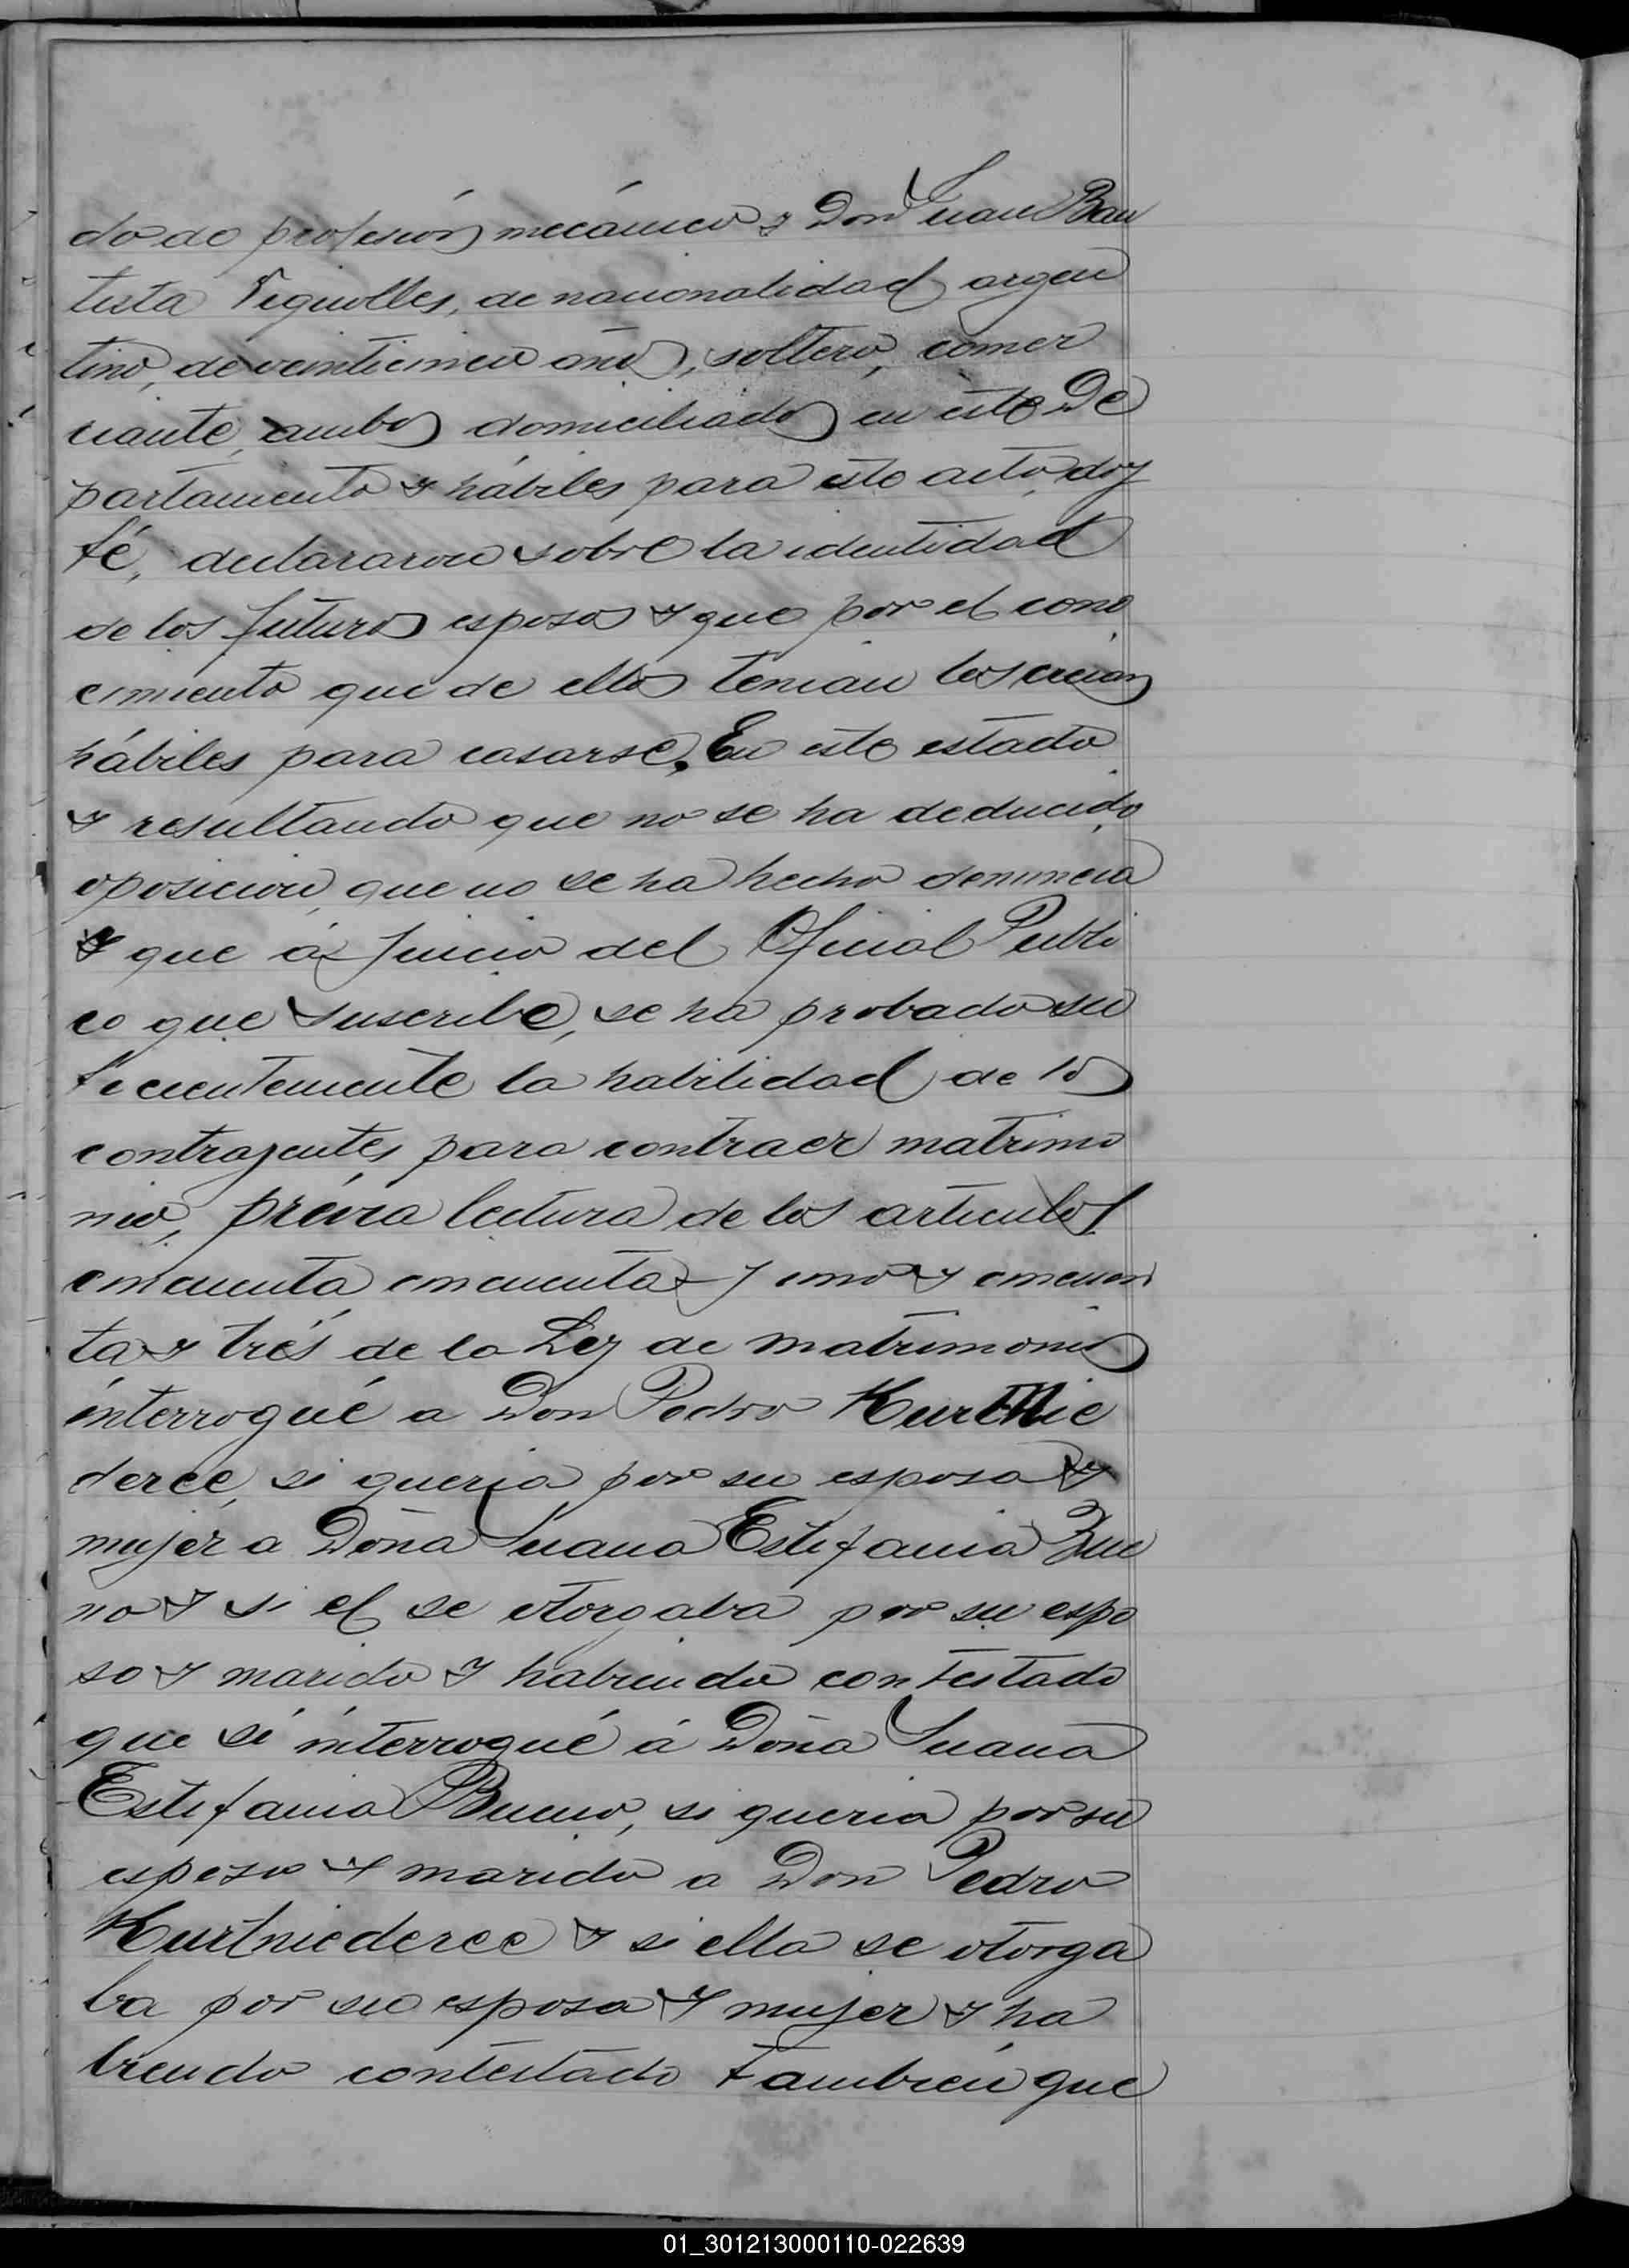 do de profesión mecánico y Don Juan Bau
tista Vignolles, de nacionalidad argen
tino, de veinticinco años, soltero, comer
ciante, ambos domiciliados en este De
partamento y hábiles para este acto, doy
fé, declararon sobre la identidad
de los futuros esposos y que por el cono
cimiento que de ellos tenian los creian
hábiles para casarse. En este estado
y resultando que no se ha deducido
oposicion, que no se ha hecho denuncia
y que á juicio del Oficial Públi
co que suscribe, se ha probado su
ficientemente la habilidad de los
contrayentes para contraer matrimo
nio, prévia lectura de los articulos
cincuenta cincuenta y uno y cincuen
ta y trés de la Ley de matrimonio
interrogué a Don Pedro Kurtnie
deree, si queria por su esposa y
mujer a Doña Juana Estefania Bue
no y si el se otorgaba por su espo
so y marido y habiendo contestado
que si interrogué á Doña Juana
Estefania Bueno, si queria por su
esposo y marido a Don Pedro
Kurtniederee y si ella se otorga
ba por su esposa y mujer y ha
biendo contestado tambien que
01_301213000110-022639